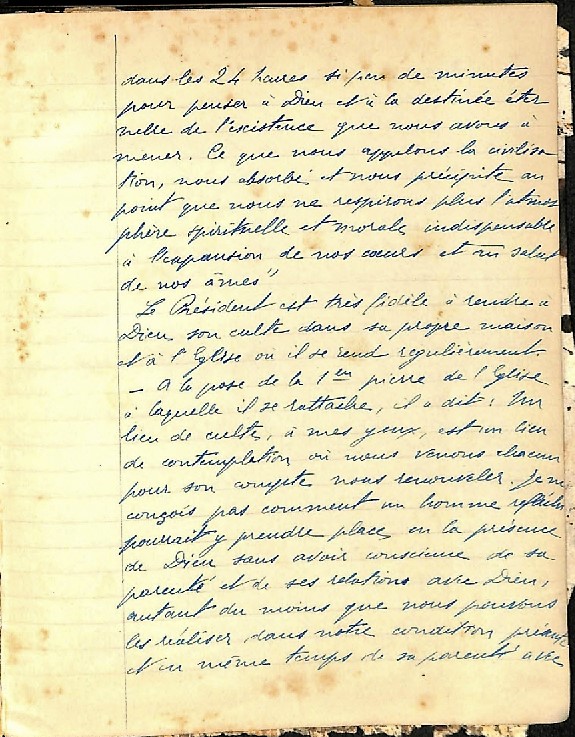 dans les 24 heures si peu de minutes
pour penser à Dieu et à la destinée éter
nelle de l'existence que nous avons à
mener. Ce que nous appelons la civilisa
tion, nous absorbe, et nous précipite au
point que nous ne respirons plus l'atmos
phère spirituelle et morale indispensable
à l'expansion de nos cœurs et au salut
de nos âmes"
Le Président est très fidèle à rendre à
Dieu son culte dans sa propre maison
et à l'Eglise où il se rend régulièrement
— A la pose de la 1ère pierre de l'Eglise
à laquelle il se rattache, il a dit: Un
lieu de culte, à mes yeux, est un lieu
de contemplation où nous venons chacun
pour son compte nous renouveler. Je ne
conçois pas comment un homme réfléchi
pourrait y prendre place en la présence
de Dieu sans avoir conscience de sa
parenté et de ses relations avec Dieu,
autant du moins que nous pouvons
les réaliser dans notre condition présente
et en même temps de sa parenté avec